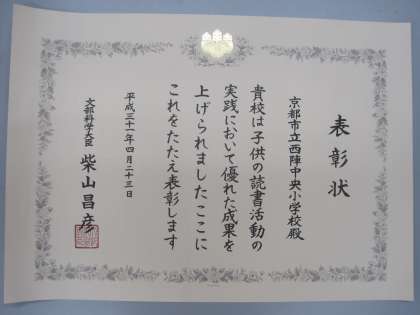 表彰状
京都市立西陣中央小学校殿
貴校は子供の読書活動の
実践において優れた成果を
上げられましたここに
これをたたえ表彰します
平成三十一年四月二十三日
文部科学大臣 柴山昌彦